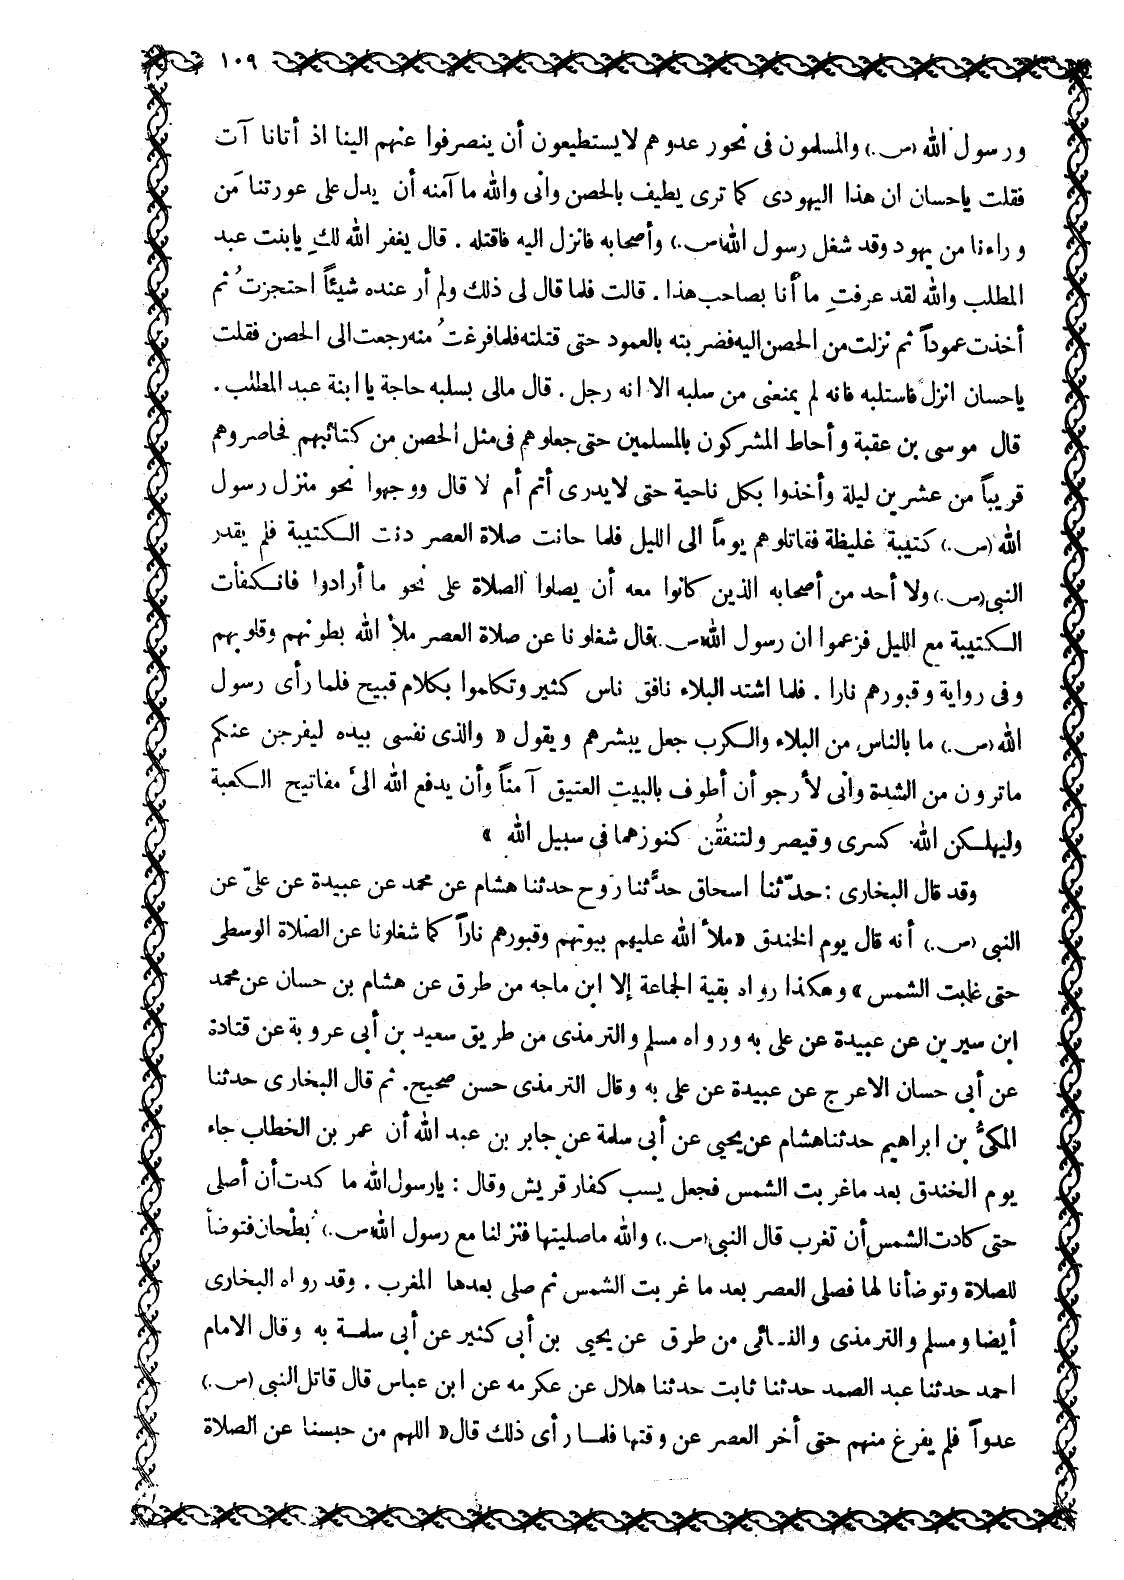 ١٠٩
ورسول الله (س.) والمسلمون فى نحور عدوهم لا يستطيعون أن ينصرفوا عنهم الينا اذ أتانا آت
فقلت ياحسان ان هذا اليهودى كما ترى يطيف بالحصن وانى والله ما آمنه أن يدل على عورتنا مَن
وراءنا من يهود وقد شغل رسول الله (س.) وأصحابه فانزل اليه فاقتله . قال يغفر الله لكِ يابنت عبد
المطلب والله لقد عرفتِ ما أنا بصاحب هذا . قالت فلما قال لى ذلك ولم أر عنده شيئاً احتجزتُ ثم
أخذت عموداً ثم نزلت من الحصن اليه فضربته بالعمود حتى قتلته فلما فرغتُ منه رجعت الى الحصن فقلت
ياحسان انزل فاستلبه فانه لم يمنعنى من سلبه الا انه رجل . قال مالى بسلبه حاجة يا ابنة عبد المطلب .
قال موسى بن عقبة وأحاط المشركون بالمسلمين حتى جعلوهم فى مثل الحصن من كتائبهم فحاصروهم
قريباً من عشرين ليلة وأخذوا بكل ناحية حتى لا يدرى أتم أم لا قال ووجهوا نحو منزل رسول
الله (س.) كتيبة غليظة فقاتلوهم يوماً الى الليل فلما حانت صلاة العصر دنت الكتيبة فلم يقدر
النبى (س.) ولا أحد من أصحابه الذين كانوا معه أن يصلوا الصلاة على نحو ما أرادوا فانكفأت
الكتيبة مع الليل فزعموا ان رسول الله (س.) قال شغلونا عن صلاة العصر ملأ الله بطونهم وقلوبهم
وفى رواية وقبورهم نارا . فلما اشتد البلاء نافق ناس كثير وتكلموا بكلام قبيح فلما رأى رسول
الله (س.) ما بالناس من البلاء والكرب جعل يبشرهم ويقول « والذى نفسى بيده ليفرجن عنكم
ماترون من الشدة وانى لأرجو أن أطوف بالبيت العتيق آمناً وأن يدفع الله الىّ مفاتيح الكعبة
وليهلكن الله كسرى وقيصر ولتنفقُن كنوزهما فى سبيل الله »
وقد قال البخارى : حدّثنا اسحاق حدَّثنا رَوح حدثنا هشام عن محمد عن عبيدة عن علىّ عن
النبى (س.) أنه قال يوم الخندق « ملأ الله عليهم بيوتهم وقبورهم ناراً كما شغلونا عن الصلاة الوسطى
حتى غابت الشمس » وهكذا رواه بقية الجماعة إلا ابن ماجه من طرق عن هشام بن حسان عن محمد
ابن سيرين عن عبيدة عن على به ورواه مسلم والترمذى من طريق سعيد بن أبى عروبة عن قتادة
عن أبى حسان الاعرج عن عبيدة عن على به وقال الترمذى حسن صحيح. ثم قال البخارى حدثنا
المكىُّ بن ابراهيم حدثنا هشام عن يحيى عن أبى سلمة عن جابر بن عبد الله أن عمر بن الخطاب جاء
يوم الخندق بعد ماغربت الشمس فجعل يسب كفار قريش وقال : يارسول الله ما كدت أن أصلى
حتى كادت الشمس أن تغرب قال النبى (س.) والله ماصليتها فنزلنا مع رسول الله (س.) بُطْحان فتوضأ
للصلاة وتوضأنا لها فصلى العصر بعد ما غربت الشمس ثم صلى بعدها المغرب . وقد رواه البخارى
أيضا ومسلم والترمذى والنسائى من طرق عن يحيى بن أبى كثير عن أبى سلمة به وقال الامام
احمد حدثنا عبد الصمد حدثنا ثابت حدثنا هلال عن عكرمه عن ابن عباس قال قاتل النبى (س.)
عدواً فلم يفرغ منهم حتى أخر العصر عن وقتها فلما رأى ذلك قال « اللهم من حبسنا عن الصلاة